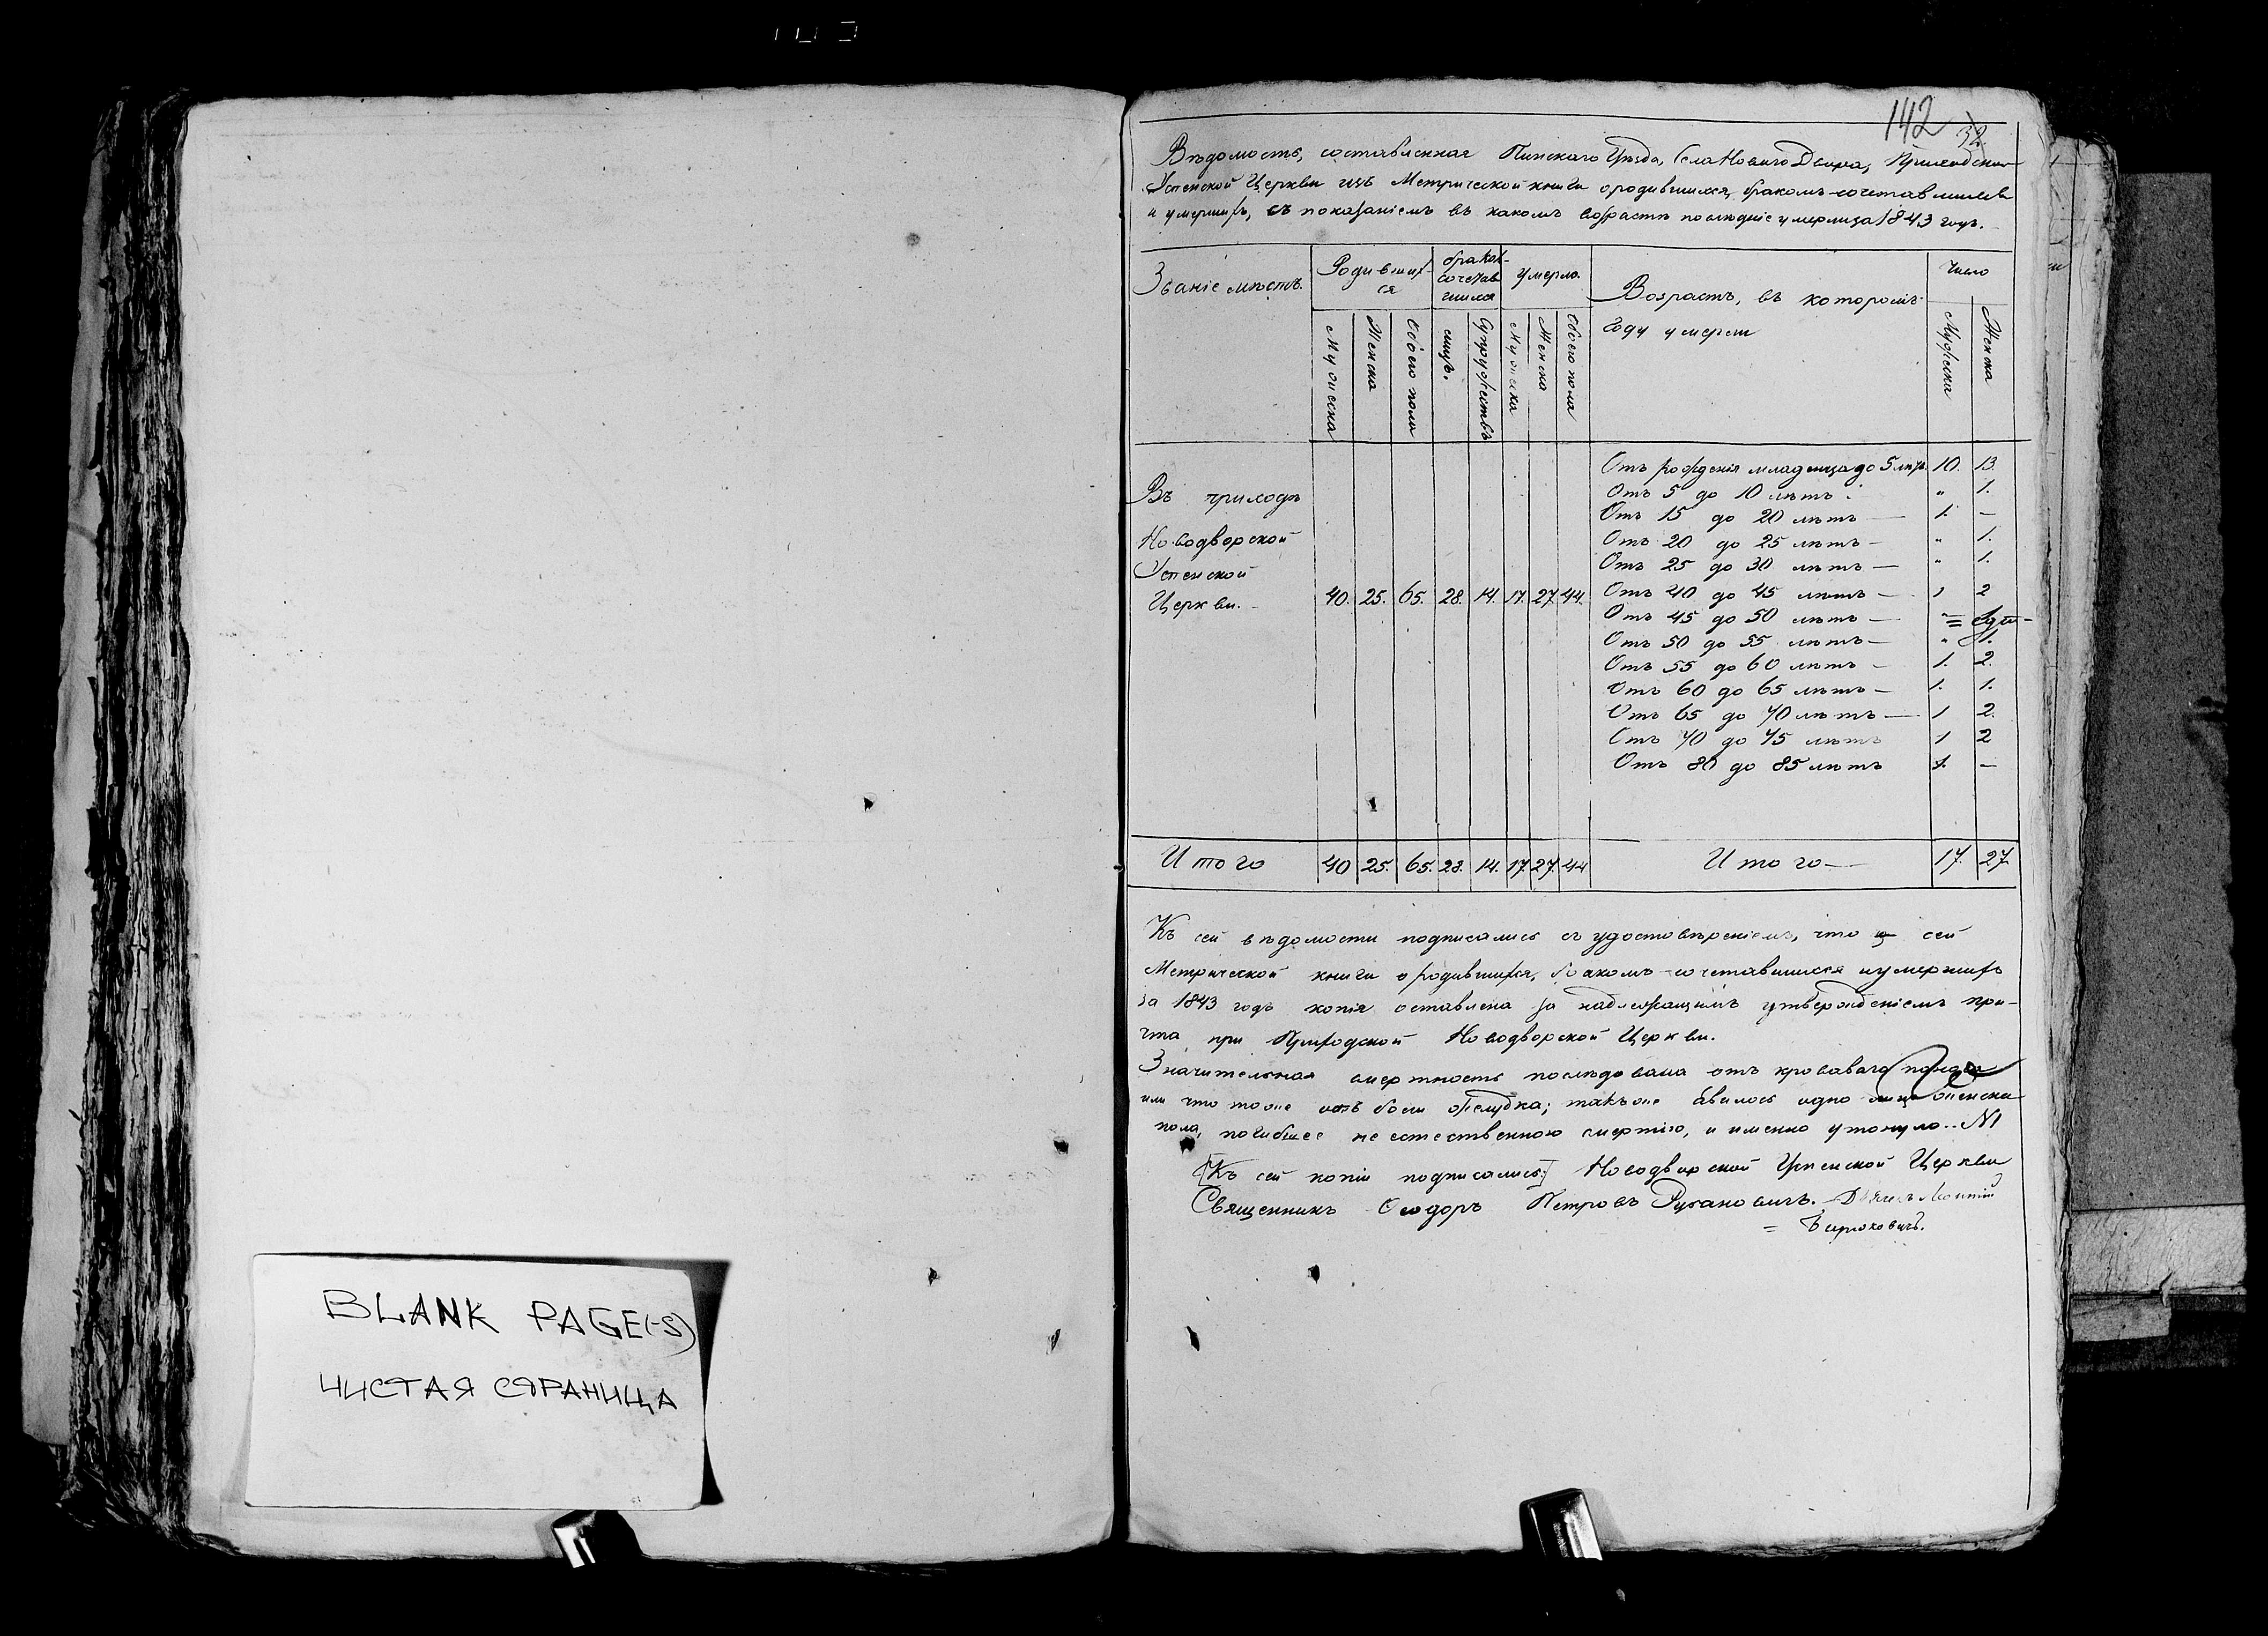 142 32.
Вѣдомость, составленная Пинскаго Уѣзда, Села Новаго Двора, Приходской
Успенской Церкви изъ Метрической книги о родившихся, бракомъ-сочетавшихся
и умершихъ, съ показаніемъ въ какомъ возрастѣ послѣдніе умерли за 1843 годъ.
Званіе мѣстъ. Родившихся бракомъ-сочетавшихся умерло Возрастъ, въ которомъ году умерли Число
Мужеска Женска Обоего пола лицъ. Супружествъ Мужеска Женска Обоего пола Мужеска Женска
Отъ рожденія младенца до 5 лѣтъ 10. 13.
Въ приходѣ
Отъ 5 до 10 лѣтъ " 1.
Отъ 15 до 20 лѣтъ — 1. —
Новодворской
Отъ 20 до 25 лѣтъ — " 1.
Успенской
Отъ 25 до 30 лѣтъ — " 1.
Церкви. 40. 25. 65. 28. 14. 17. 27. 44.
Отъ 40 до 45 лѣтъ — 1 2
Отъ 45 до 50 лѣтъ —
Отъ 50 до 55 лѣтъ — " 1.
Отъ 55 до 60 лѣтъ — 1. 2.
Отъ 60 до 65 лѣтъ — 1. 1.
Отъ 65 до 70 лѣтъ — 1 2.
Отъ 70 до 75 лѣтъ 1 2
Отъ 80 до 85 лѣтъ 1. —
Итого 40 25. 65. 28. 14. 17. 27. 44 Итого — 17. 27.
Къ сей вѣдомости подписались съ удостовѣреніемъ, что сей
Метрической книги о родившихся, бракомъ-сочетавшихся и умершихъ
за 1843 годъ копія оставлена за надлежащимъ утвержденіемъ при-
чта при Приходской Новодворской Церкви.
Значительная смертность послѣдовала отъ кроваваго поноса
или что тоже отъ боли желудка; также явилось одно лице женска
пола, погибшее не естественною смертію, и именно утонуло.. N1
[Къ сей копіи подписались:] Новодворской Успенской Церкви
Священникъ Ѳеодоръ Петровъ Леонтій
=
BLANK PAGE(-S)
ЧИСТАЯ СТРАНИЦА